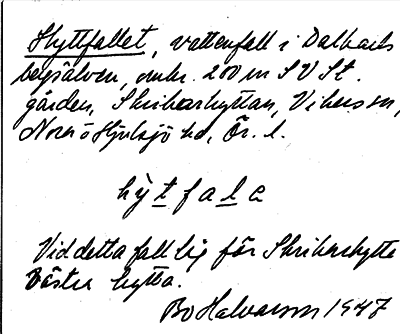 Hyttfallet, vattenfall i Dalkarls
bergsälven, omkr. 200 m SV St.
gården, Skrikarhyttan, Vikers sn,
Nora o Hjulsjö hd, Ör. l.
hỳtfala
Vid detta fall låg förr Skrikarhytte
Västra hytta.
Bo Halvarson 1947